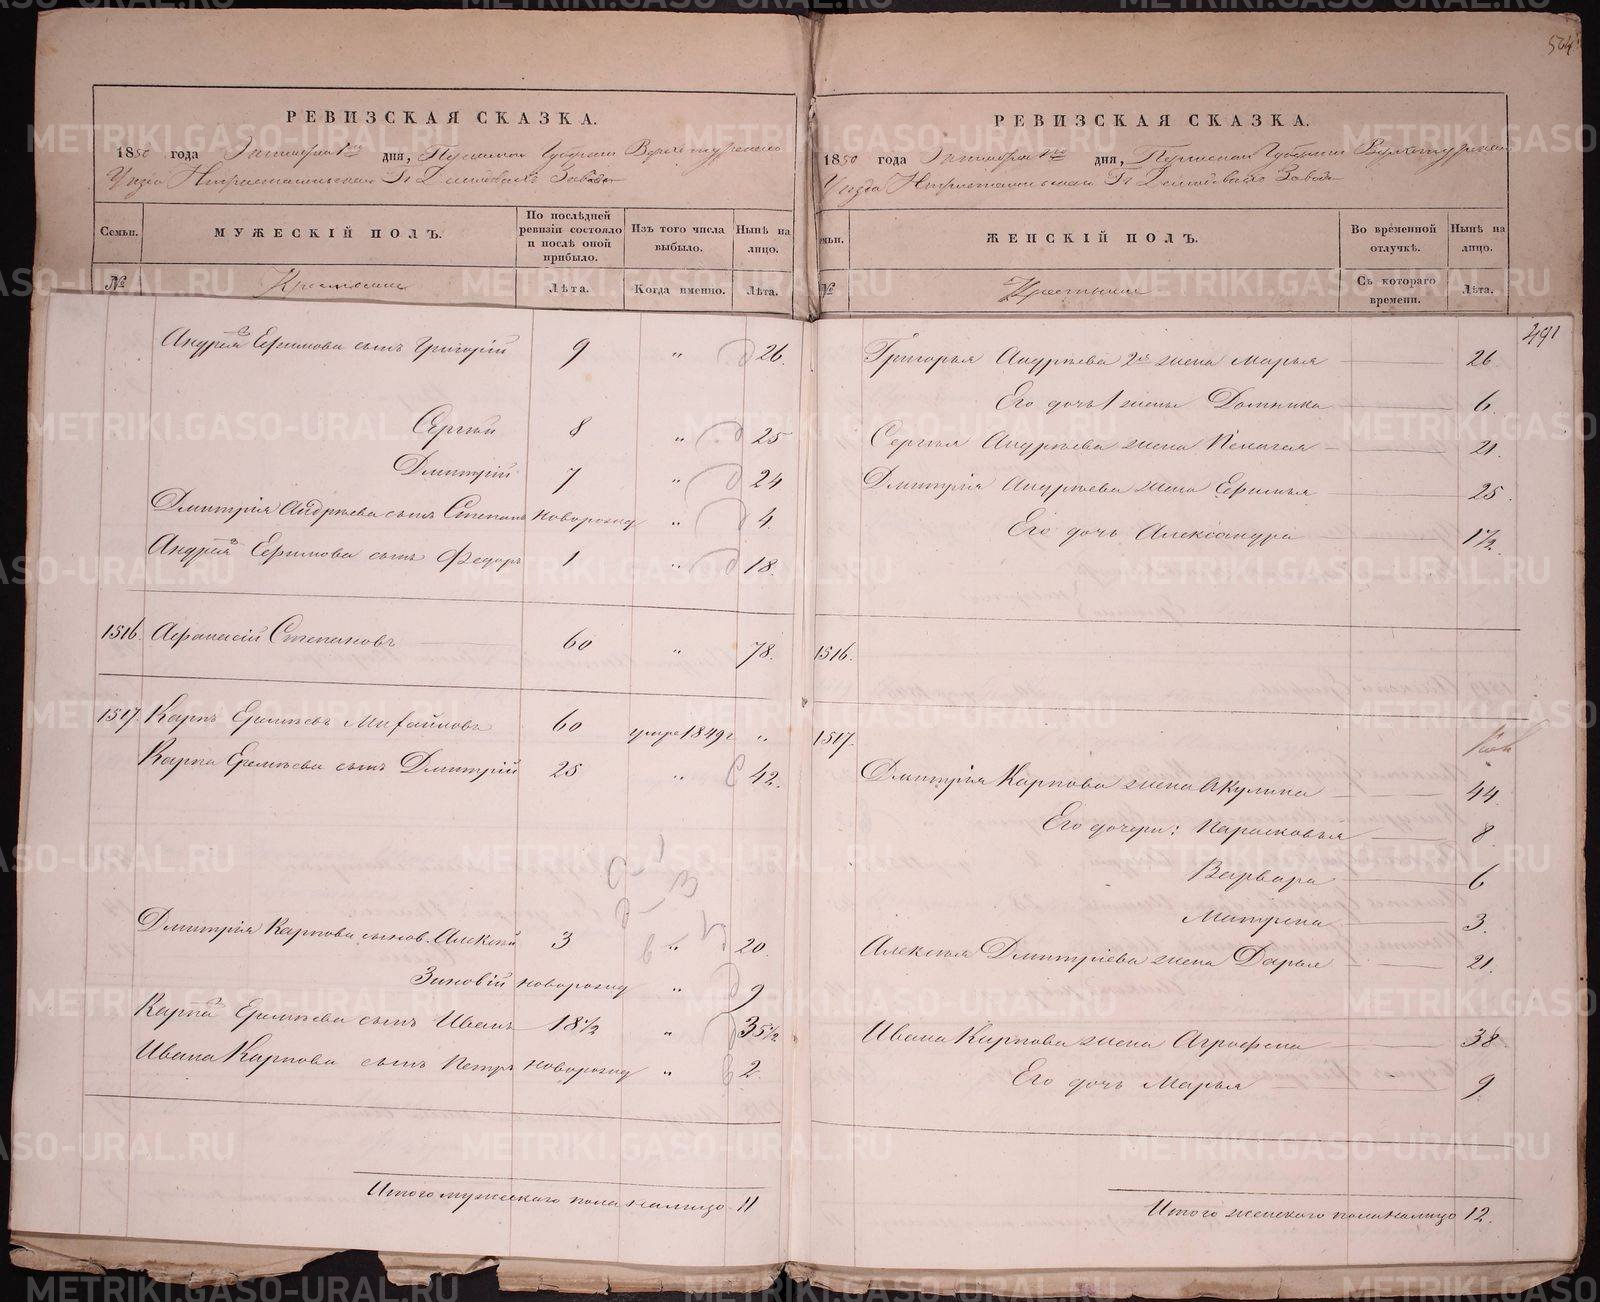 524
РЕВИЗСКАЯ СКАЗКА.
1850 года Октября 1го дня, Пермской Губернии Верхотурскаго
Уезда Нижнетагильскаго Гг Демидовыхъ Завода
Семьи. МУЖЕСКІЙ ПОЛЪ. По послѣдней ревизіи состояло и послѣ оной прибыло. Изъ того числа выбыло. Нынѣ на лицо.
№ Крестьяне Лѣта. Когда именно. Лѣта.
Андрея Ефимова сынъ Григорій 9 " 26.
Сергѣй 8 " 25
Дмитрій 7 " 24
Дмитрія Андрѣева сынъ Степанъ новорожд " 4
Андрея Ефимова сынъ Федоръ 1 " 18.
1516. Афанасій Степановъ 60 " 78.
1517. Карпъ Еремѣевъ Михайловъ 60 умре 1849г "
Карпа Еремѣева сынъ Дмитрій 25 " 42.
Дмитрія Карпова сынов. Алексѣй 3 " 20.
Зиновій новорожд " 9
Карпа Еремѣева сынъ Иванъ 18½ " 35½
Ивана Карпова сынъ Петръ новорожд " 2.
Итого мужескаго пола налицо 11
РЕВИЗСКАЯ СКАЗКА.
1850 года Октября 1го дня, Пермской Губернии Верхотурскаго
Уезда Нижнетагильскаго Гг Демидовыхъ Завода
ЖЕНСКІЙ ПОЛЪ. Во врéменной отлучкѣ. Нынѣ на лицо.
№ Крестьяне Съ котораго времени. Лѣта.
491
Григорья Андрѣева 2я жена Марья 26
Его дочь 1 жены Домника 6.
Сергѣя Андрѣева жена Пелагея 21.
Дмитрія Андрѣева жена Ефимья 25.
Его дочь Александра 1½.
1516.
1517.
Дмитрія Карпова жена Акулина 44
Его дочери: Парасковья 8.
Варвара 6
Матрена 3.
Алексѣя Дмитріева жена Дарья 21.
Ивана Карпова жена Агрофена 38
Его дочь Марья 9.
Итого женскаго пола налицо 12.
METRIKI.GASO-URAL.RU